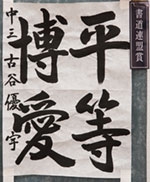 書道連盟賞
平等
博愛
中三 古谷優宇